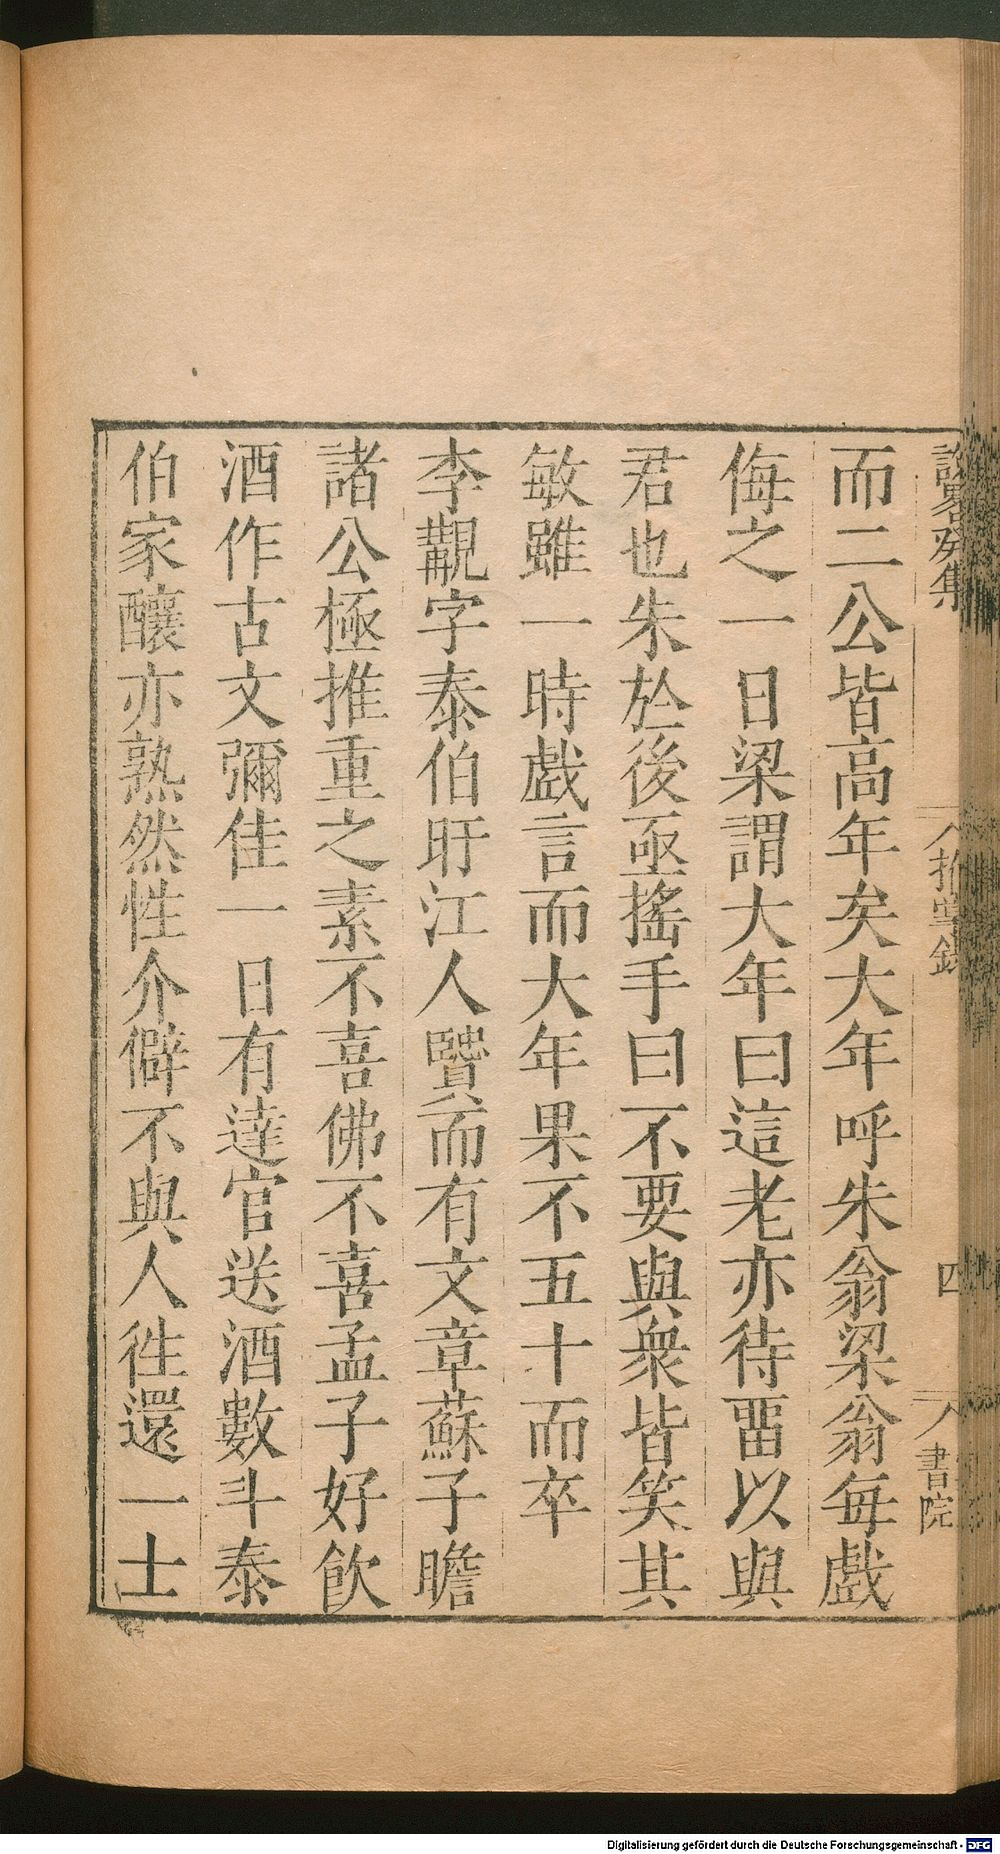 說畧癸集
拊掌錄
四
書院
而二公皆高年矣大年呼朱翁梁翁每戲
侮之一日梁謂大年曰這老亦待畱以與
君也朱於後亟搖手曰不要與衆皆笑其
敏雖一時戲言而大年果不五十而卒
李覯字泰伯盱江人賢而有文章蘇子瞻
諸公極推重之素不喜佛不喜孟子好飲
酒作古文彌佳一日有達官送酒數斗泰
伯家釀亦熟然性介僻不與人徃還一士
Digitalisierung gefördert durch die Deutsche Forschungsgemeinschaft - DFG